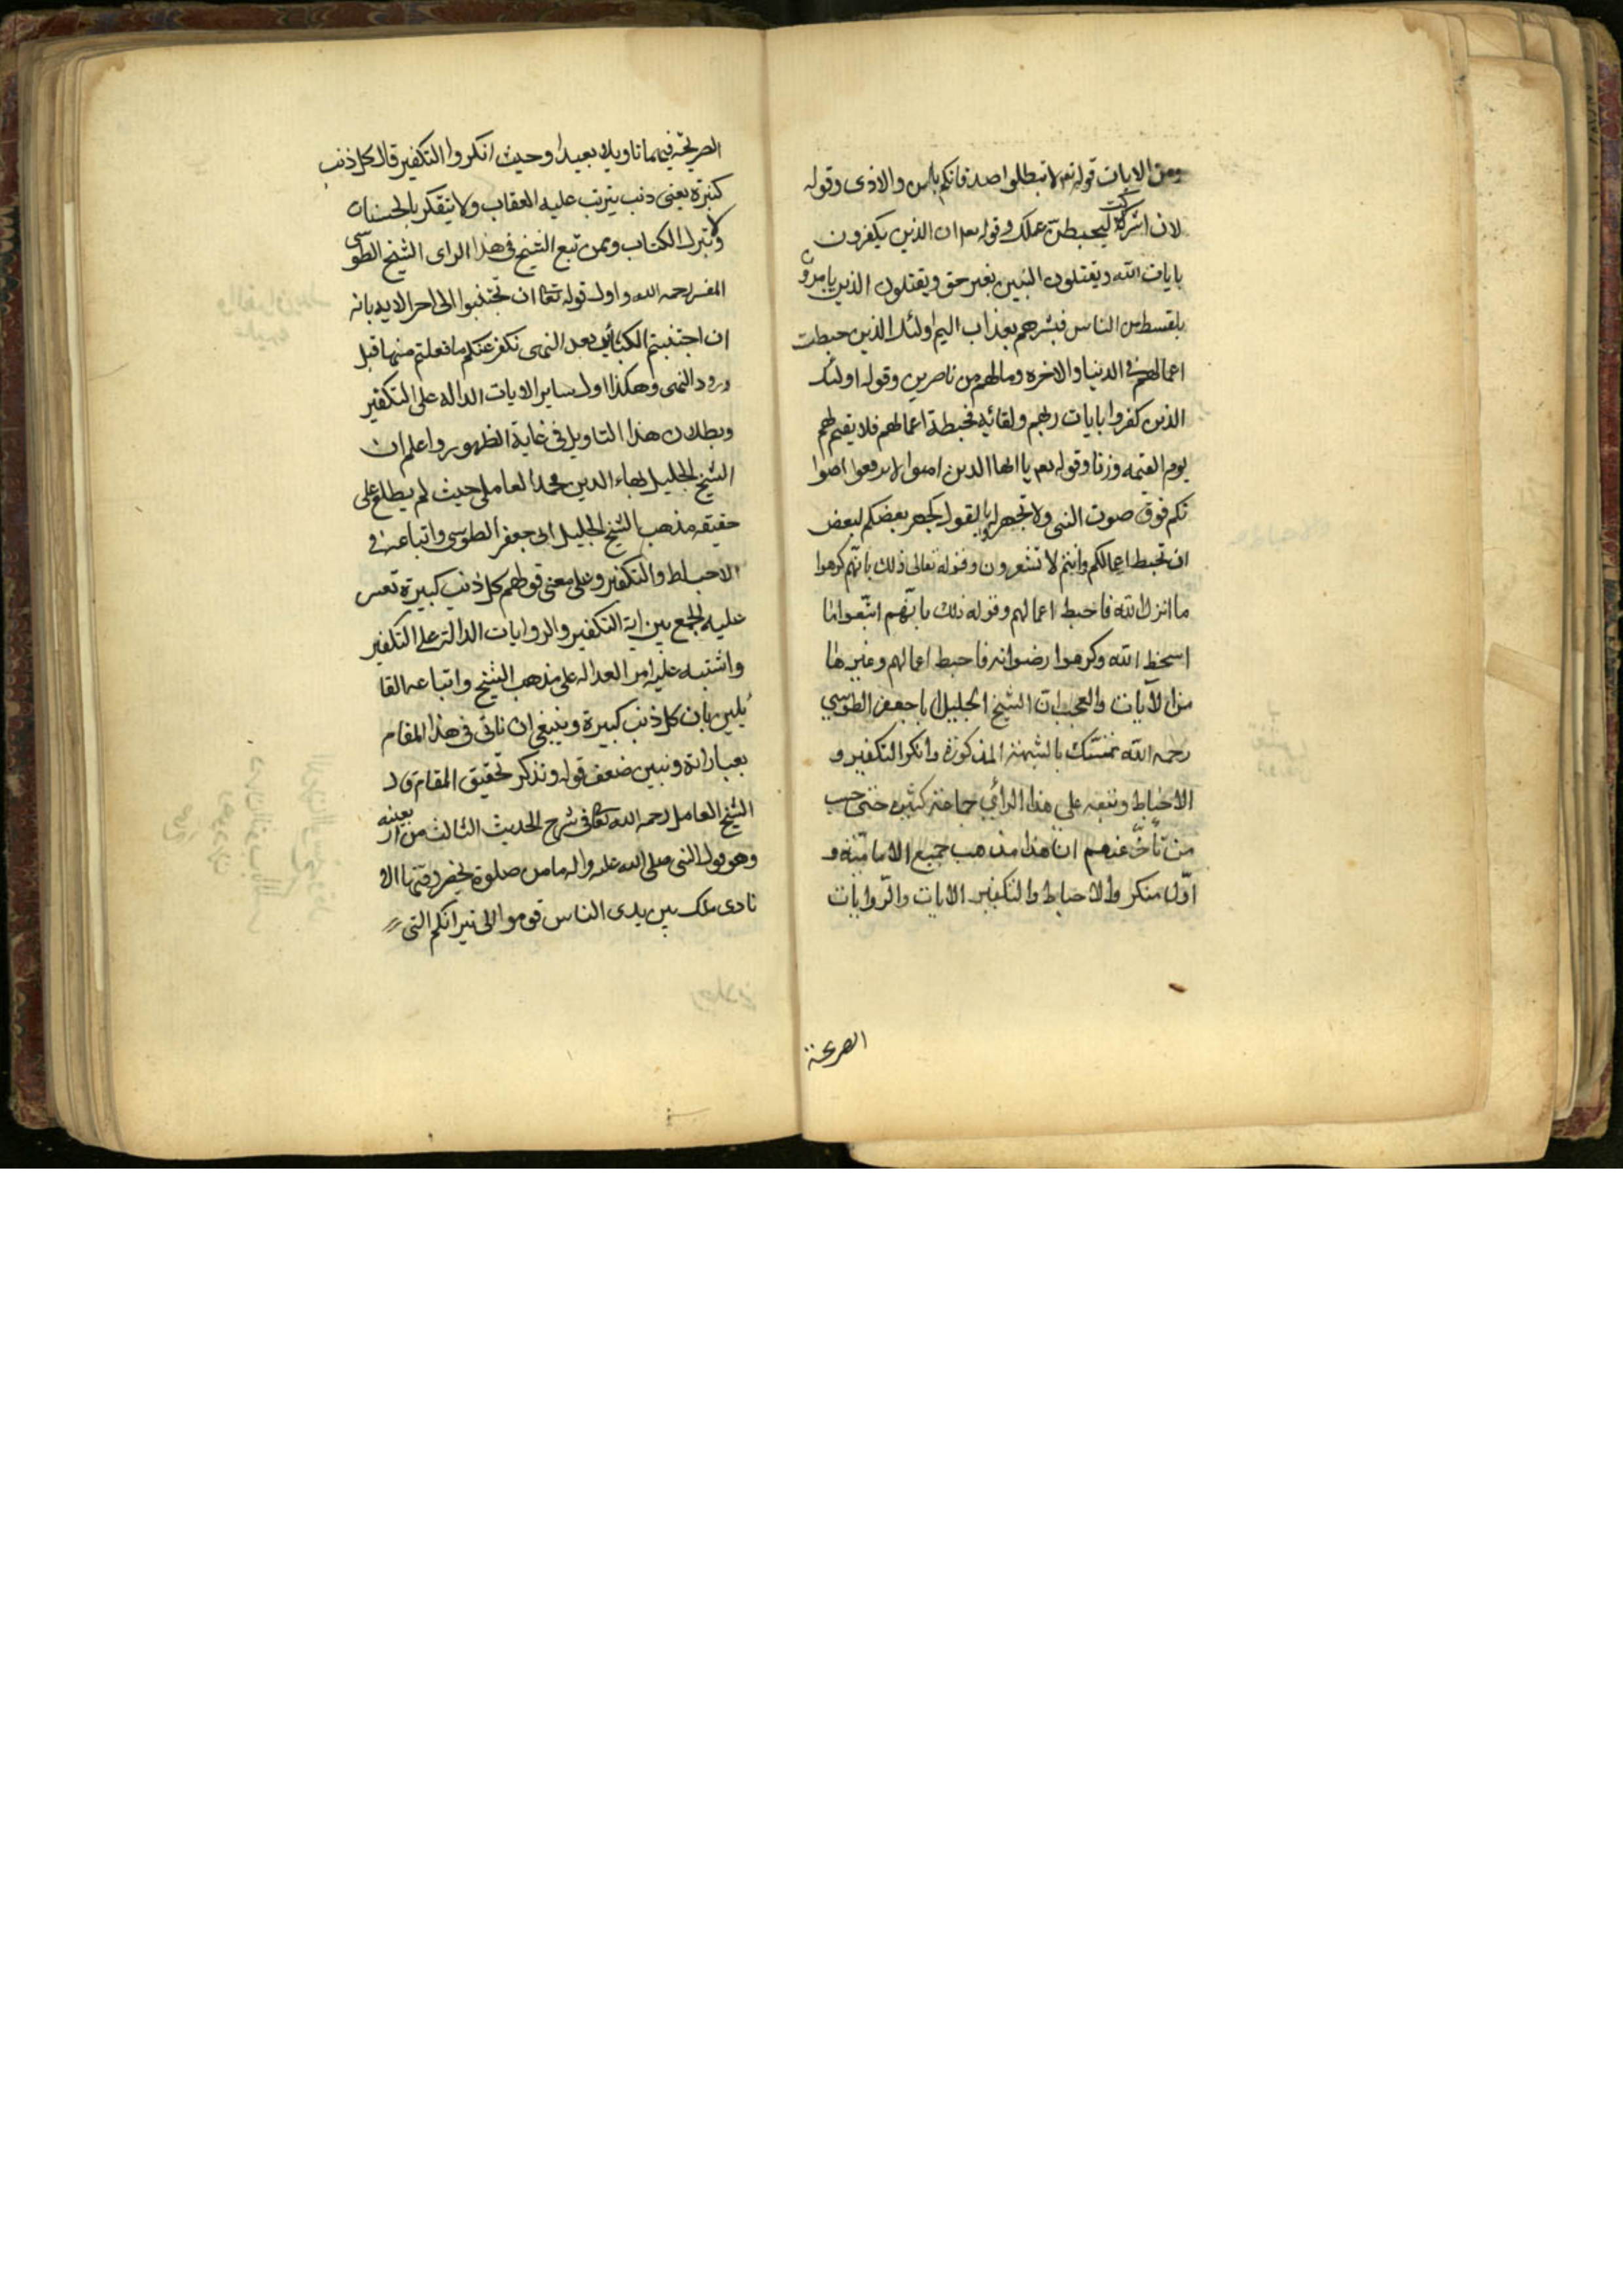 ومن الايات قوله تعم لا تبطلوا صدقاتكم بالمن والاذى وقوله
لان اشركت ليحبطن عملك وقوله تعم ان الذين يكفرون
بايات الله ويقتلون النبين بغير حق ويقتلون الذين يامرون
بالقسط من الناس فبشرهم بعذاب اليم اولئك الذين حبطت
اعمالهم فى الدنيا والاخره ومالهم من ناصرين وقوله اولئك
الذين كفروا بايات ربهم ولقائه فحبطة اعمالهم فلا يقيم لهم
يوم القيمه وزنا وقوله تعم يا ايها الذين امنوا لا ترفعوا اصوا
تكم فوق صوت النبى ولا تجهر له بالقول كجهر بعضكم لبعض
ان تحبط اعمالكم وانتم لا تشعرون وقوله تعالى ذلك بانهم كرهوا
ما انزل الله فاحبط اعمالهم وقوله ذلك بانهم اتبعوا ما
اسخط الله وكرهوا رضوانه فاحبط اعمالهم وغيرها
من الآيات والعجب ان الشيخ الجليل ابا جعفر الطوسي
رحمه الله تمسك بالشبهة المذكورة وانكر التكفير و
الاحباط وتبعه على هذا الرأي جماعة كثيرة حتى حسب
من تأخّر عنهم ان هذا مذهب جميع الامامية و
اوّل منكروا الاحباط والتكفير الايات والروايات
الصريحة
الصريحة فيهما تاويلا بعيدا وحيث انكروا التكفير قال كل ذنب
كبيرة يعنى ذنب يترتب عليه العقاب ولا يتفكر بالحسنات
ولا بترك الكتاب وممن تبع الشيخ فى هذا الراى الشيخ الطوسى
المفسر رحمه الله واول قوله تعا ان تجتنبوا الى اخر الايه بانه
ان اجتنبتم الكبائر بعد النهى نكفر عنكم ما فعلتم منها قبل
ورود النهى وهكذا اول ساير الايات الداله على التكفير
وبطلان هذا التاويل فى غاية الظهور واعلم ان
الشيخ الجليل بهاء الدين محمد العاملى حيث لم يطلع على
حقيقه مذهب الشيخ الجليل ابى جعفر الطوسى واتباعه فى
الاحباط والتكفير وعلى معنى قولهم كل ذنب كبيرة تعسر
عليه الجمع بين اية التكفير والروايات الدالة على التكفير
واشتبه عليه امر العداله على مذهب الشيخ واتباعه القا
ئلين بان كل ذنب كبيرة وينبغى ان ناتى فى هذا المقام
بعباراته ونبين ضعف قوله ونذكر تحقيق المقام قال
الشيخ العامل رحمه الله تعا فى شرح الحديث الثالث من اربعينه
وهو قول النبى صلى الله عليه واله ما من صلوة يحضر وقتها الا
نادى ملك بين يدى الناس قوموا الى نيرانكم التى